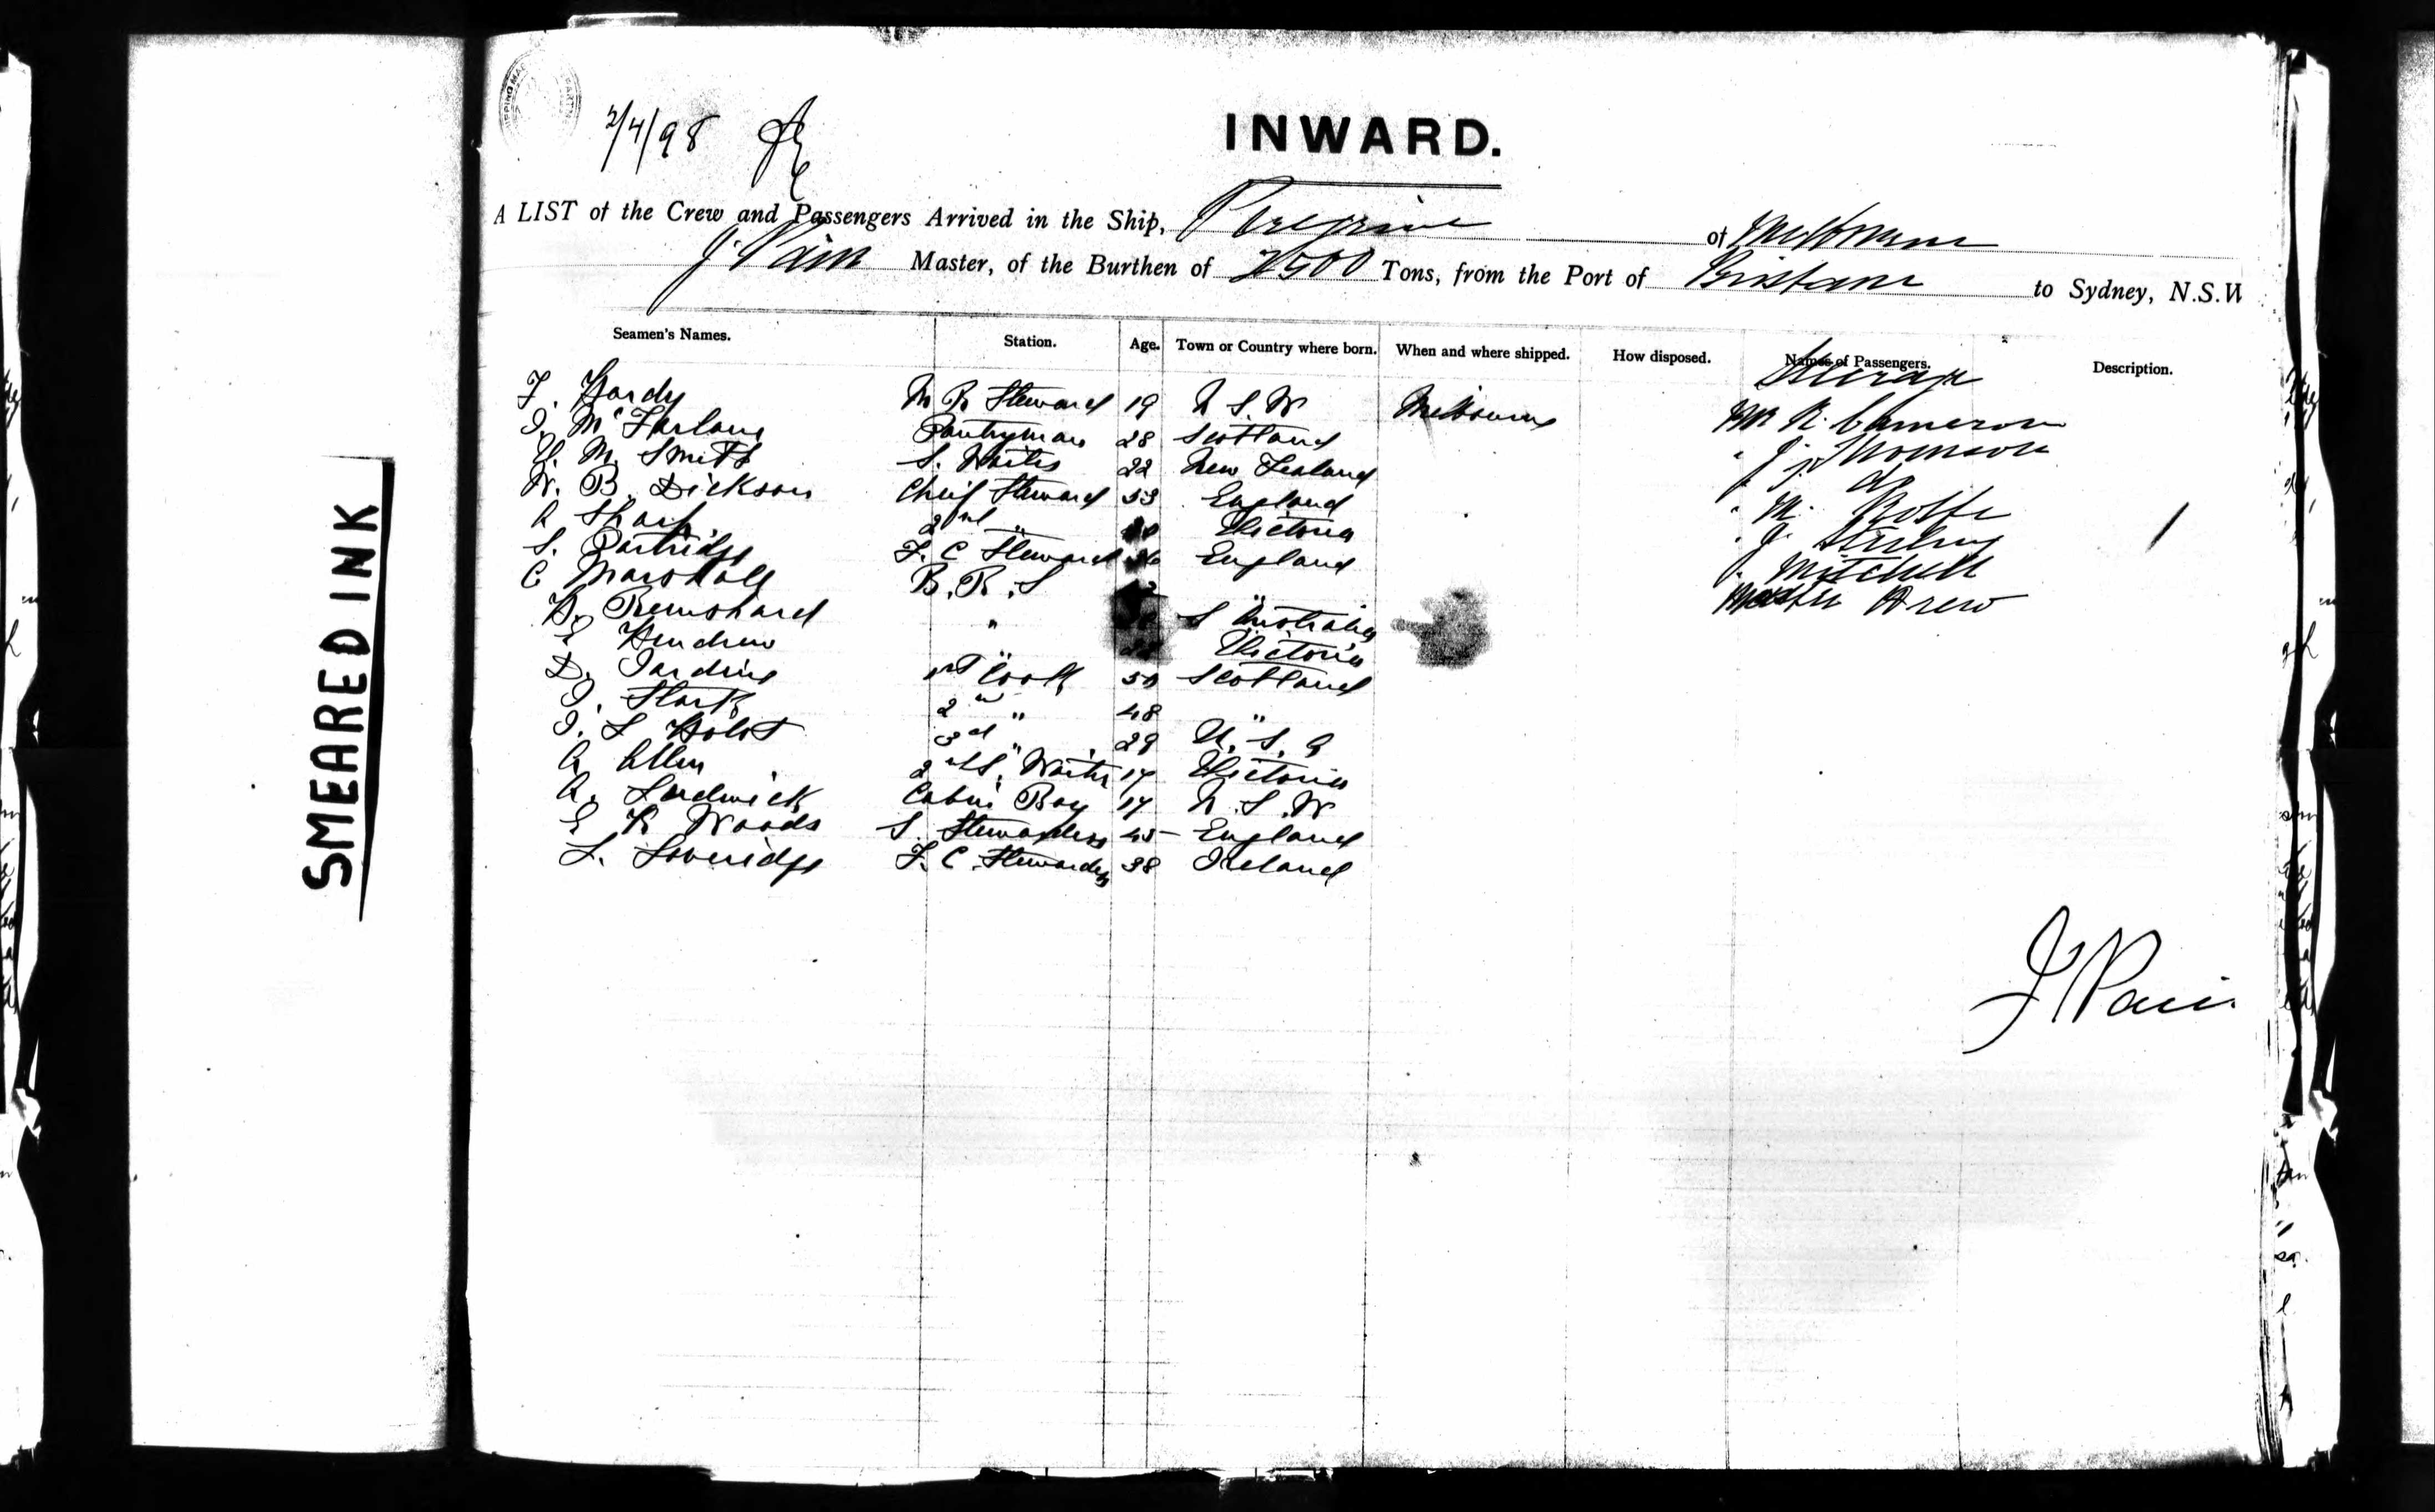 SMEARED INK
2/4/98
INWARD.
A LIST of the Crew and Passengers Arrived in the Ship, Peregrine of Melbourne
J. Pain Master, of the Burthen of 2500 Tons, from the Port of Brisbane to Sydney, N.S.W
Seamen's Names. Station. Age. Town or Country where born. When and where shipped. How disposed. Names of Passengers. Description.
Steerage
F. Hardy M R Steward 19 N S. W Melbourne Mr R. Cameron
J. McFarlane Pantryman 28 Scotland " J. Thomson
M. Smith S. Waiter 22 New Zealand do
W. B. Dickson Cheif Steward 53 England " M. Rolfe
A Sharp 2nd " Victoria " J. Stirling
S. Partridge F. C Steward England Mitchell
C Marshall B. R. S " Master Drew
H. " S Australia
E Hendrew " Victoria
D. Jardine 1st Cook 50 Scotland
J. Stark 2nd " 48 "
J. S Holst 3rd " 29 U. S. A
A. Allen 2nd S. Waiter 17 Victoria
A. Sedwick Cabin Boy 17 N. S. W
E R Woods S. Stewardess 45 England
L. Loveridge F. C. Stewardess 38 Ireland
J Pain